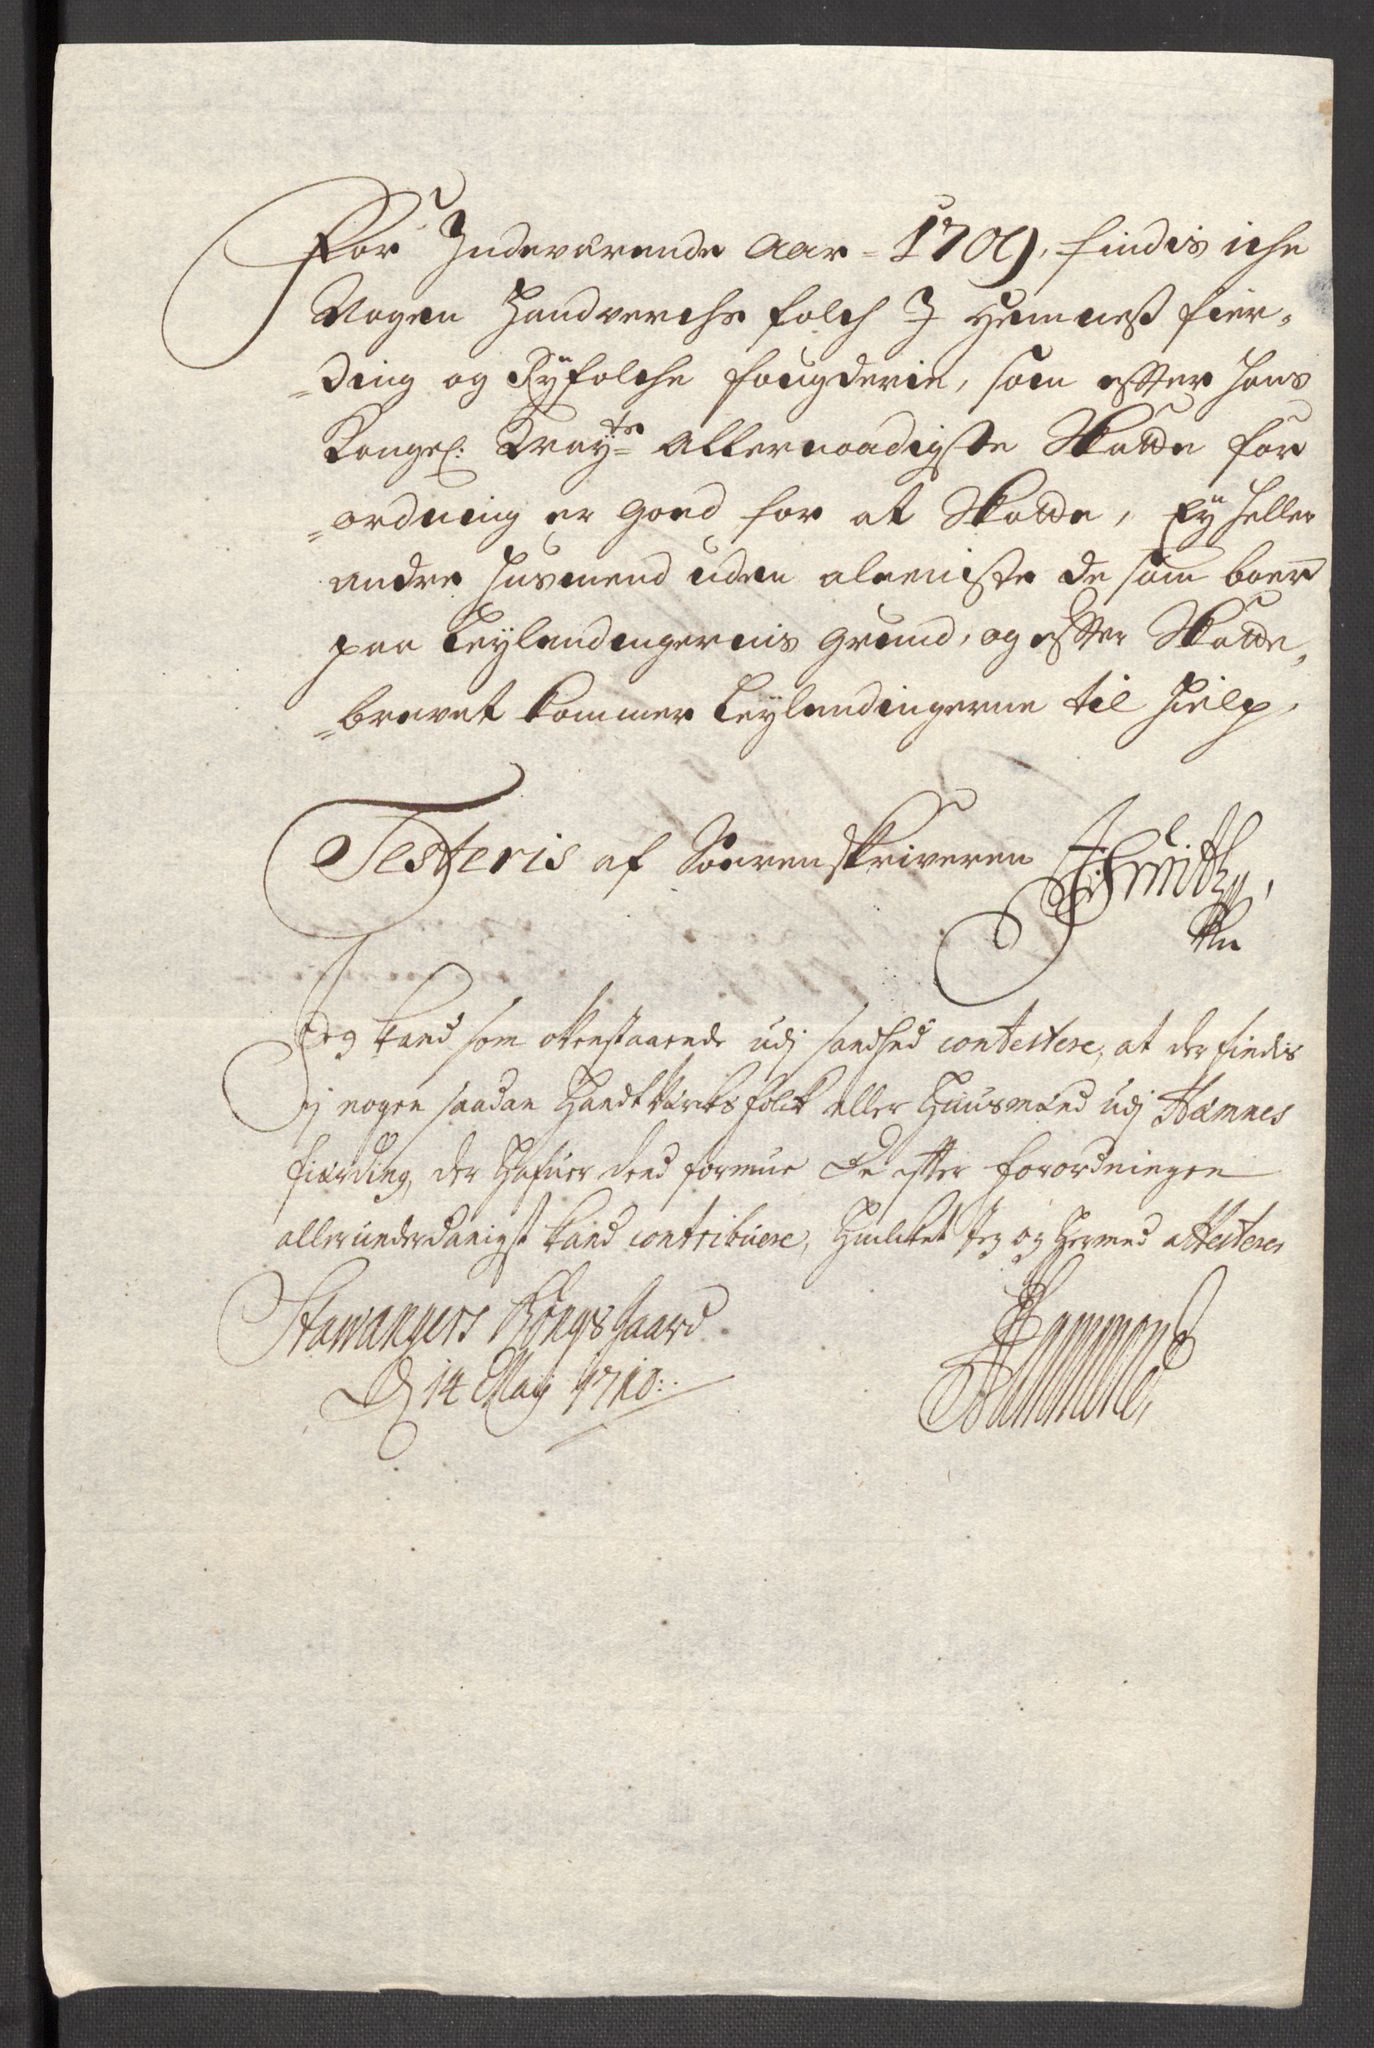 For Indeværende Aar = 1709, findis iche
Nogen Handverchs folch I Hemneß fier-
=ding og Ryfölche fougderie, som effter Hans
Kongel: May:ts Allernaadigste Skatte for
=ordning er goed for at Skatte, Ey heller
andre Husmend uden aleeniste de som boer
paa Leylendingernis grund, og effter Skatte,
=brevet kommer Leylendingerne til Hielp,
Testeris af Soerenskriveren
Jeg kand som ofvenstaaende udj sandhed contestere, at der findis
Ej nogen saadan Handtværks folck eller Huusmænd udj Hæmnes
fiærding, der Hafuer dend formue De effter forordningen
allerunderdanigst kand contribuere, Huilcket Jeg og Hermed attesterer
Stawangers Kongsgaard
D 14 May 1710:
Hammond